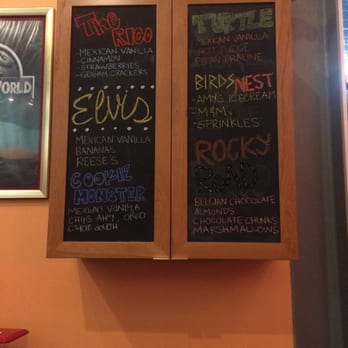 WORLD
The
RIO
- MEXICAN VANILLA
- CINNAMON
- STRAWBERRIES
- GRAHAM CRACKERS
Elvis
MEXICAN VANILLA
BANANAS
REESE'S
COOKIE
MONSTER
MEXICAN VANILLA
CHIPS AHOY, OREO
COOKIE DOUGH
TURTLE
MEXICAN VANILLA
HOT FUDGE
PECAN PRALINE
BIRDS NEST
- AMY'S ICE CREAM
- M&M,
- SPRINKLES
ROCKY
ROAD
BELGIAN CHOCOLATE
ALMONDS
CHOCOLATE CHUNKS
MARSHMALLOWS